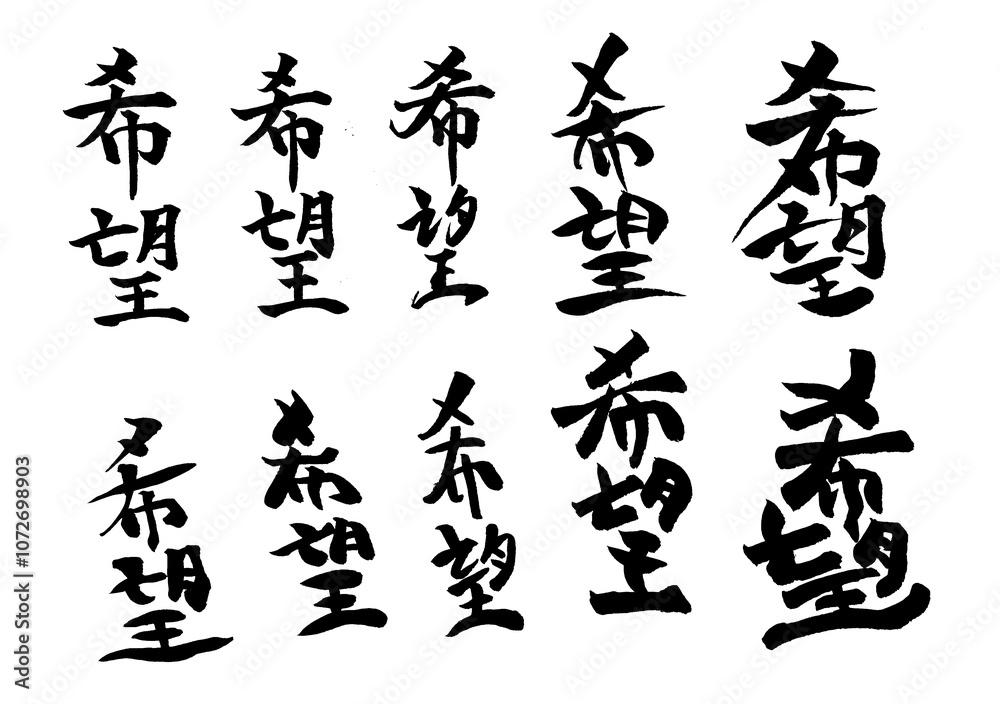 希望
希望
希望
希望
希望
希望
希望
希望
希望
希望
Adobe Stock | #1072698903